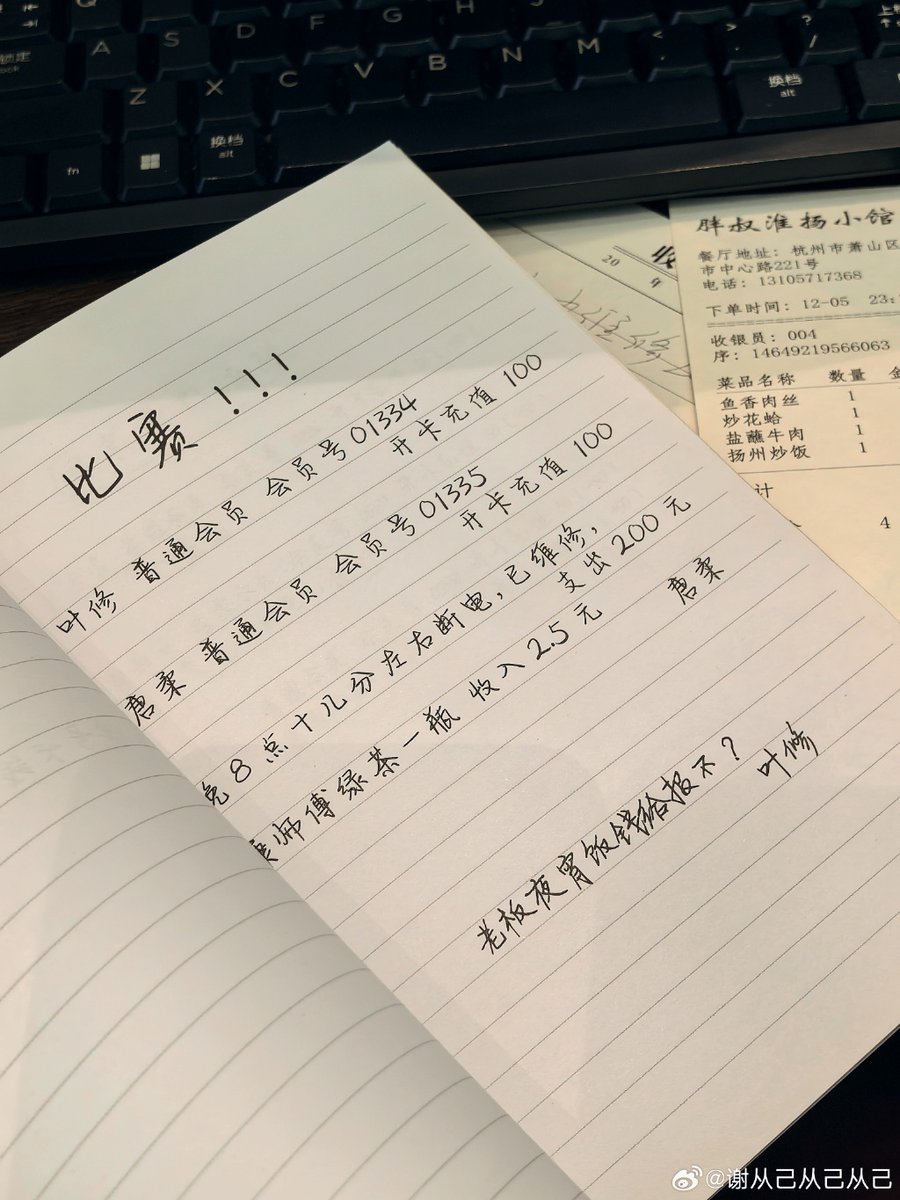 A S D F G H J K
锁定
Z X C V B N M
fn
换档
alt
换档
alt
比赛!!!
叶修 普通会员 会员号01334
开卡充值 100
唐柔 普通会员 会员号01335
开卡充值 100
晚8点十几分左右断电,已维修,
支出200元
康师傅绿茶一瓶 收入2.5元
唐柔
老板夜宵饭钱给报不?
叶修
收
20
胖叔淮扬小馆
餐厅地址: 杭州市萧山区
市中心路221号
电话: 13105717368
下单时间: 12-05 23:
收银员: 004
序: 14649219566063
菜品名称 数量 金
鱼香肉丝 1
炒花蛤 1
盐蘸牛肉 1
扬州炒饭 1
计
4
@谢从己从己从己